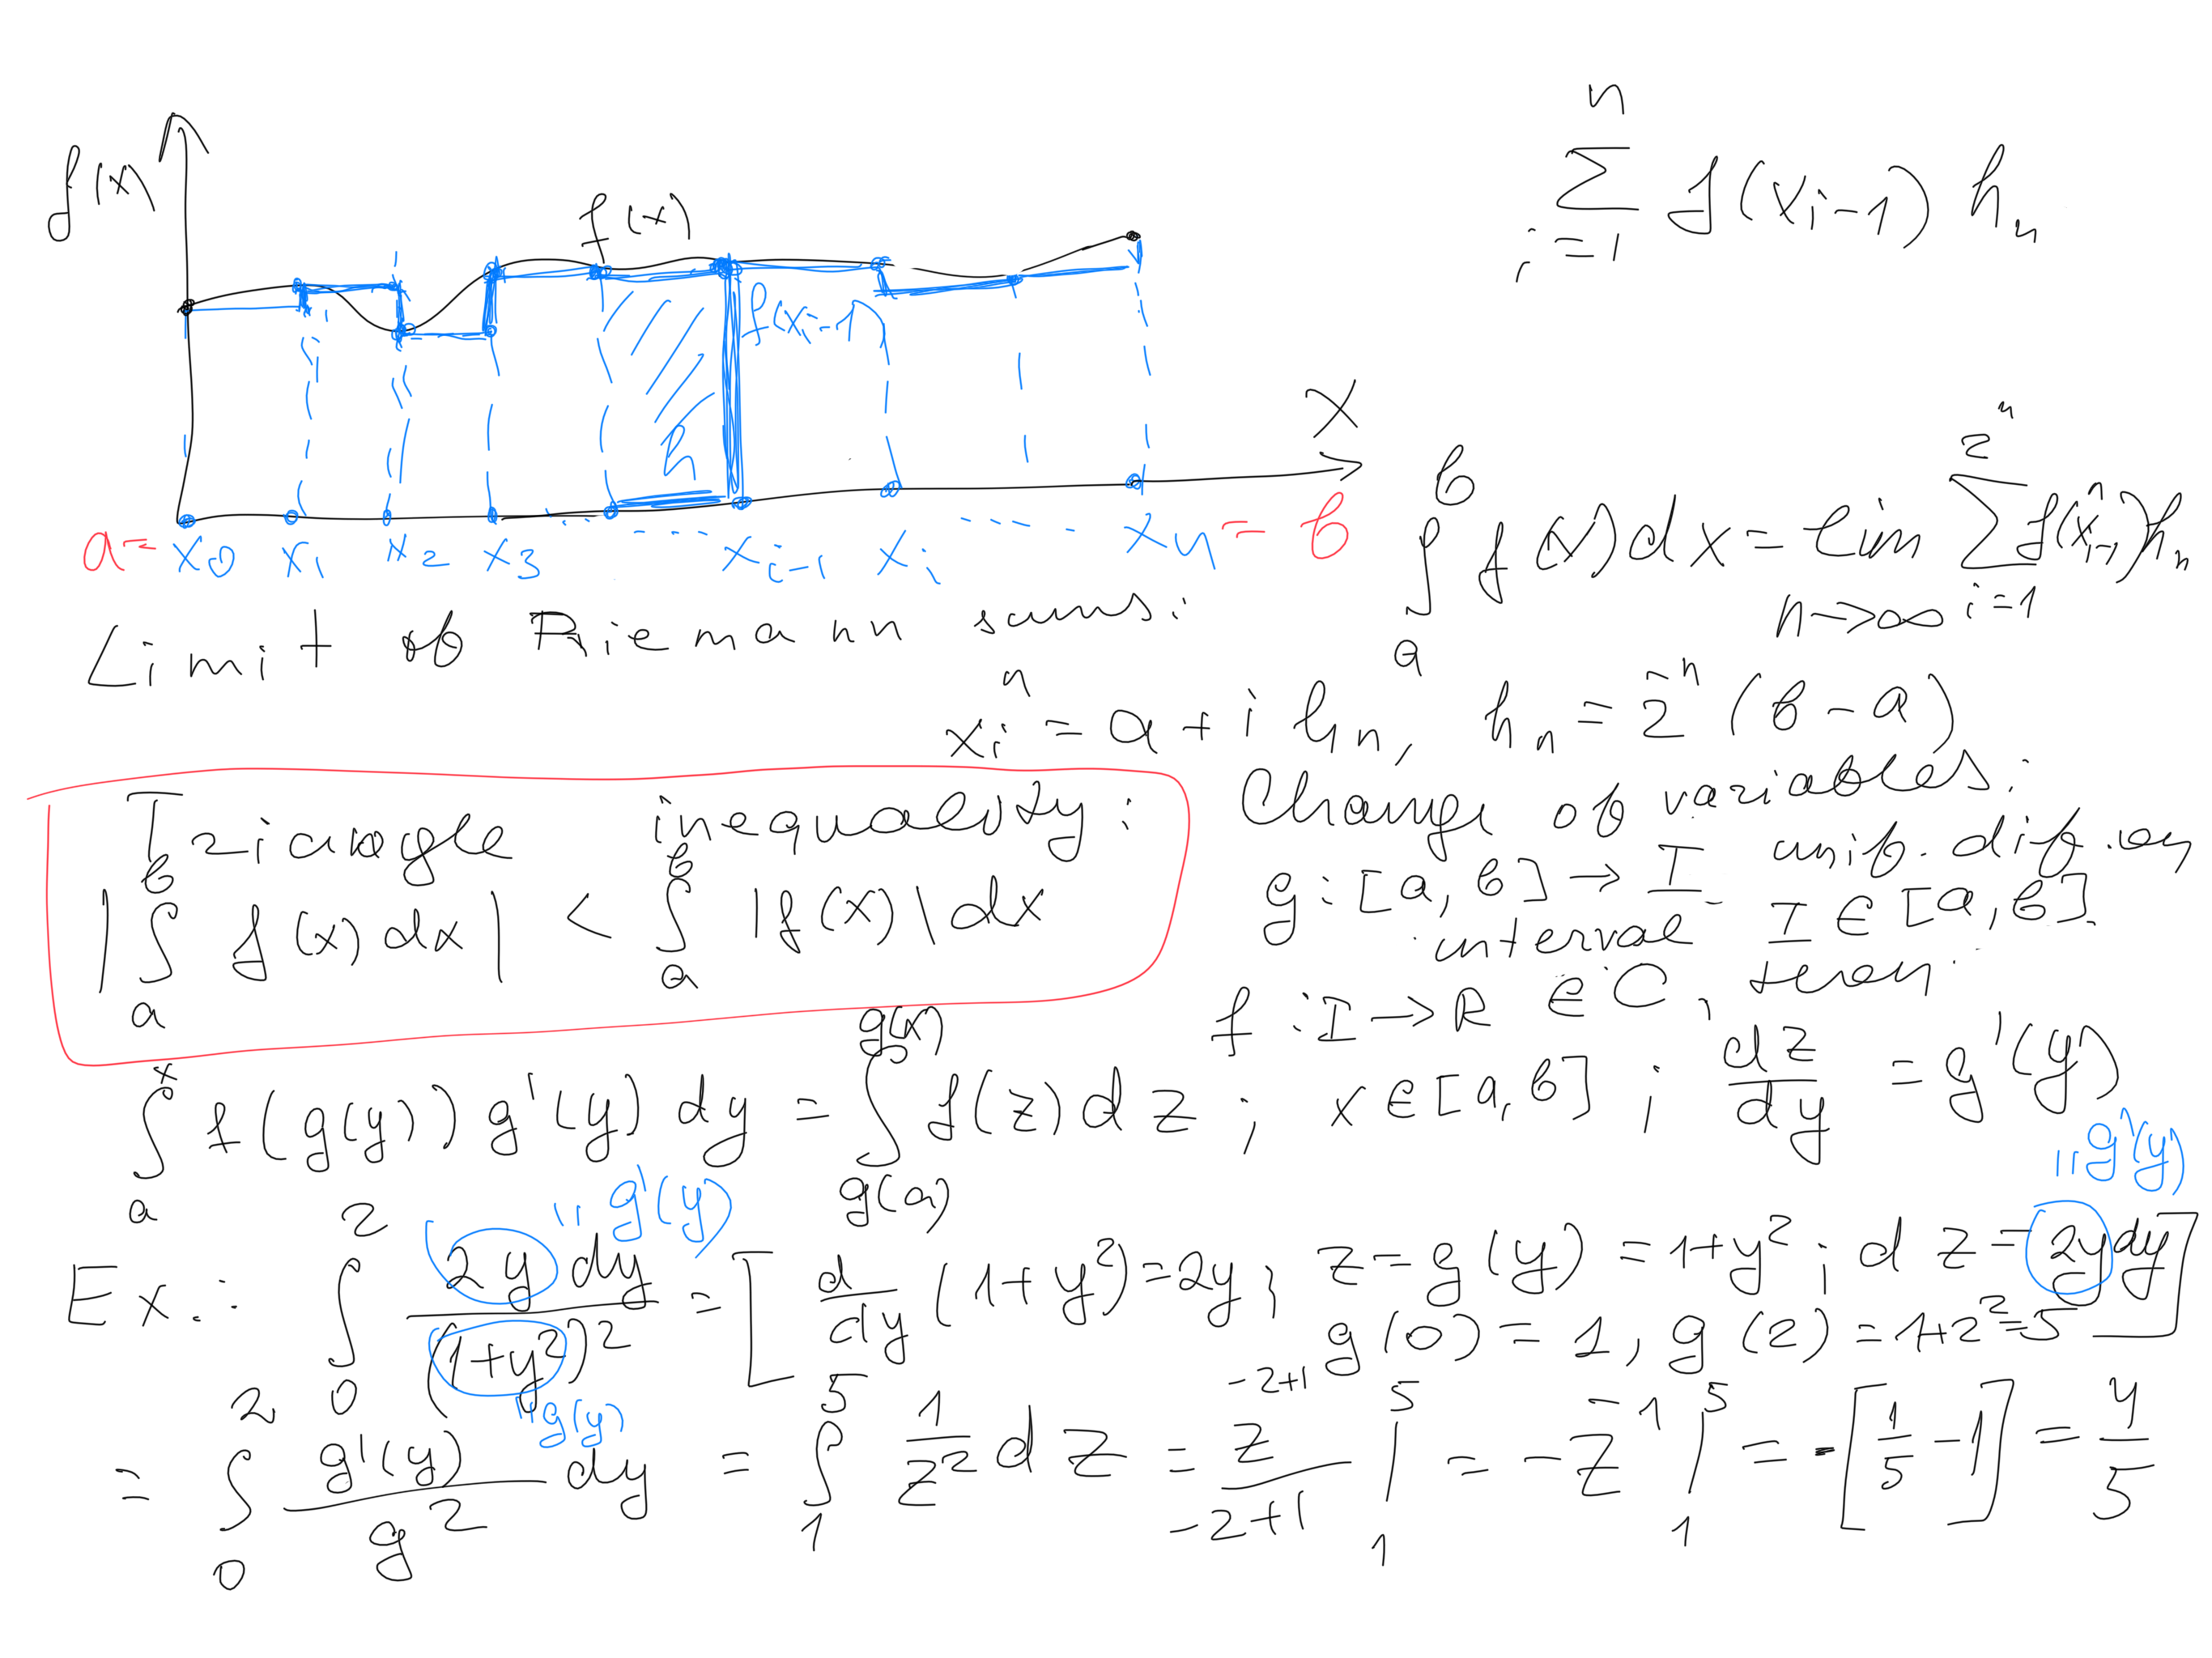 f(x)
f(x)
n
∑ f(x_{i-1}) h_n
i=1
f(x_{i-1})
h
x
a= x_0 x_1 x_2 x_3 ... .... x_{i-1} x_i ..... x_n = b
∫_a^b f(x)dx = lim_{n→∞} ∑_{i=1}^{2^n} f(x_{i-1}^n) h_n
Limit of Riemann sums:
x_i^n = a + i h_n, h_n = 2^{-n} (b-a)
Triangle inequality:
|∫_a^b f(x)dx| < ∫_a^b |f(x)| dx
Change of variables:
g: [a,b] → I unif. dif. on
interval I ∈ [a,b]
f: I → R ∈ C, then
∫_a^x f(g(y)) g'(y) dy = ∫_{g(a)}^{g(x)} f(z)dz ; x∈[a,b] ; dz/dy = g'(y)
"g'(y) "g'(y)
Ex.: ∫_0^2 2y dy / (1+y^2)^2 = [ d/dy (1+y^2)=2y; z=g(y)=1+y^2; dz=2ydy
g(0)=1, g(2)=1+2^2=5 ]
"g(y)
= ∫_0^2 g'(y)/g^2 dy = ∫_1^5 1/z^2 dz = z^{-2+1}/(-2+1) |_1^5 = -z^{-1} |_1^5 = -[1/5 - 1] = 4/5